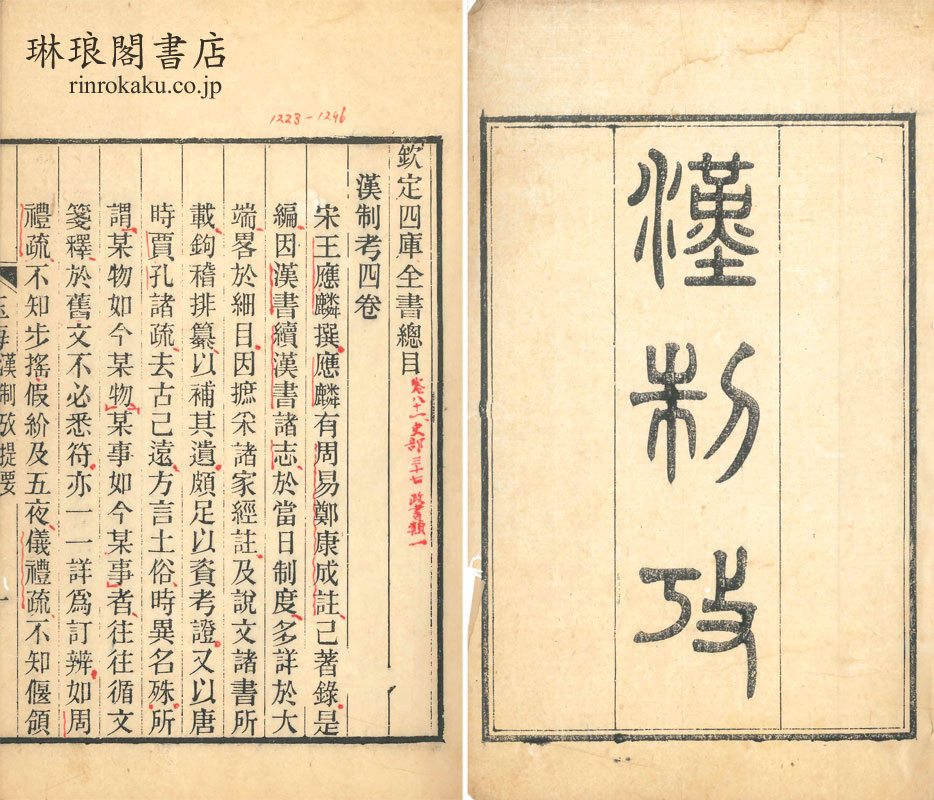 漢制攷
琳琅閣書店
rinrokaku.co.jp
1223-1246
欽定四庫全書總目
卷八十一 史部三十七 政書類一
漢制考四卷
宋王應麟撰應麟有周易鄭康成註己著錄是
編因漢書續漢書諸志於當日制度多詳於大
端畧於細目因摭采諸家經註及說文諸書所
載鉤稽排纂以補其遺頗足以資考證又以唐
時賈孔諸疏去古已遠方言土俗時異名殊所
謂某物如今某物某事如今某事者往往循文
箋釋於舊文不必悉符亦一一詳爲訂辨如周
禮疏不知步搖假紒及五夜儀禮疏不知偃領
玉海漢制攷提要
一